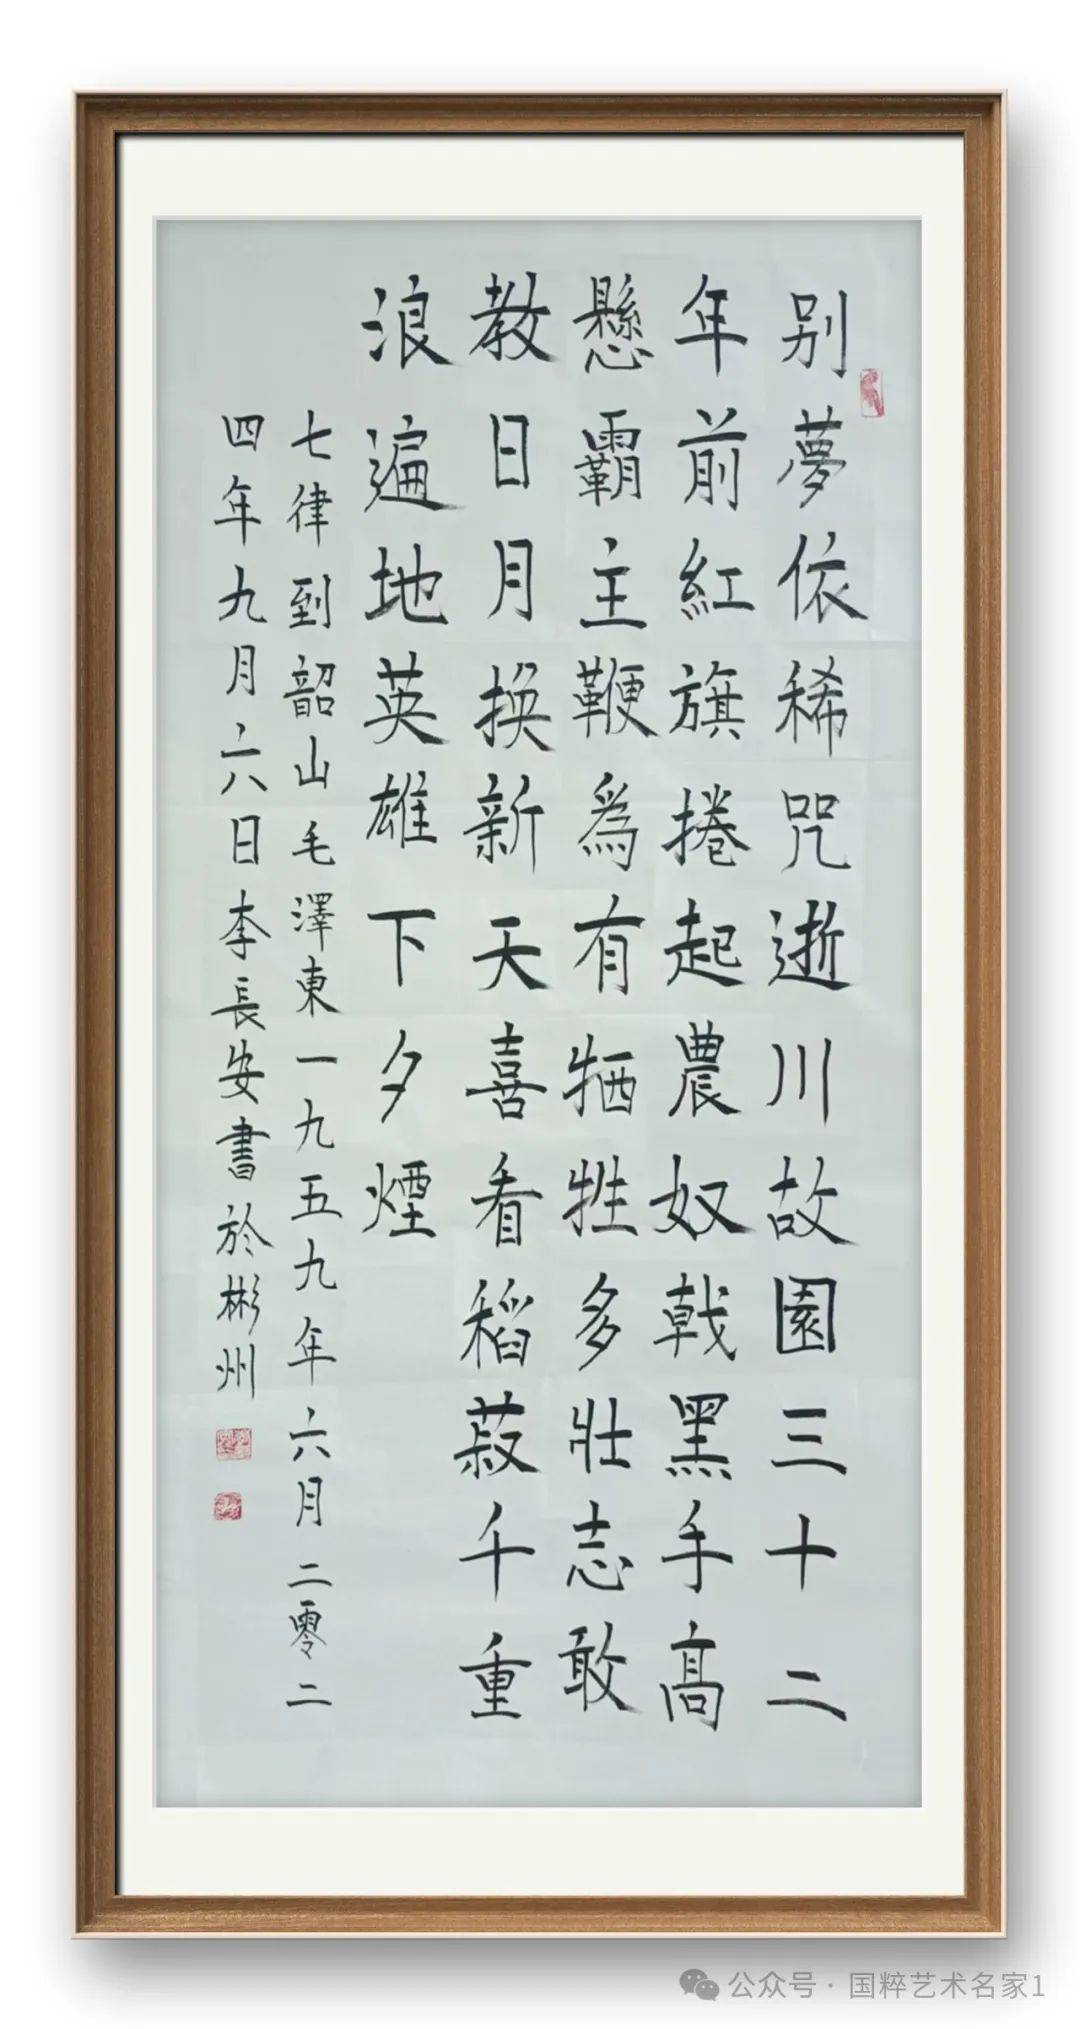 别夢依稀咒逝川故園三十二
年前紅旗捲起農奴戟黑手高
懸霸主鞭爲有牺牲多壯志敢
教日月换新天喜看稻菽千重
浪遍地英雄下夕煙
七律到韶山毛澤東一九五九年六月二零二
四年九月六日李長安書於彬州
公众号·国粹艺术名家1